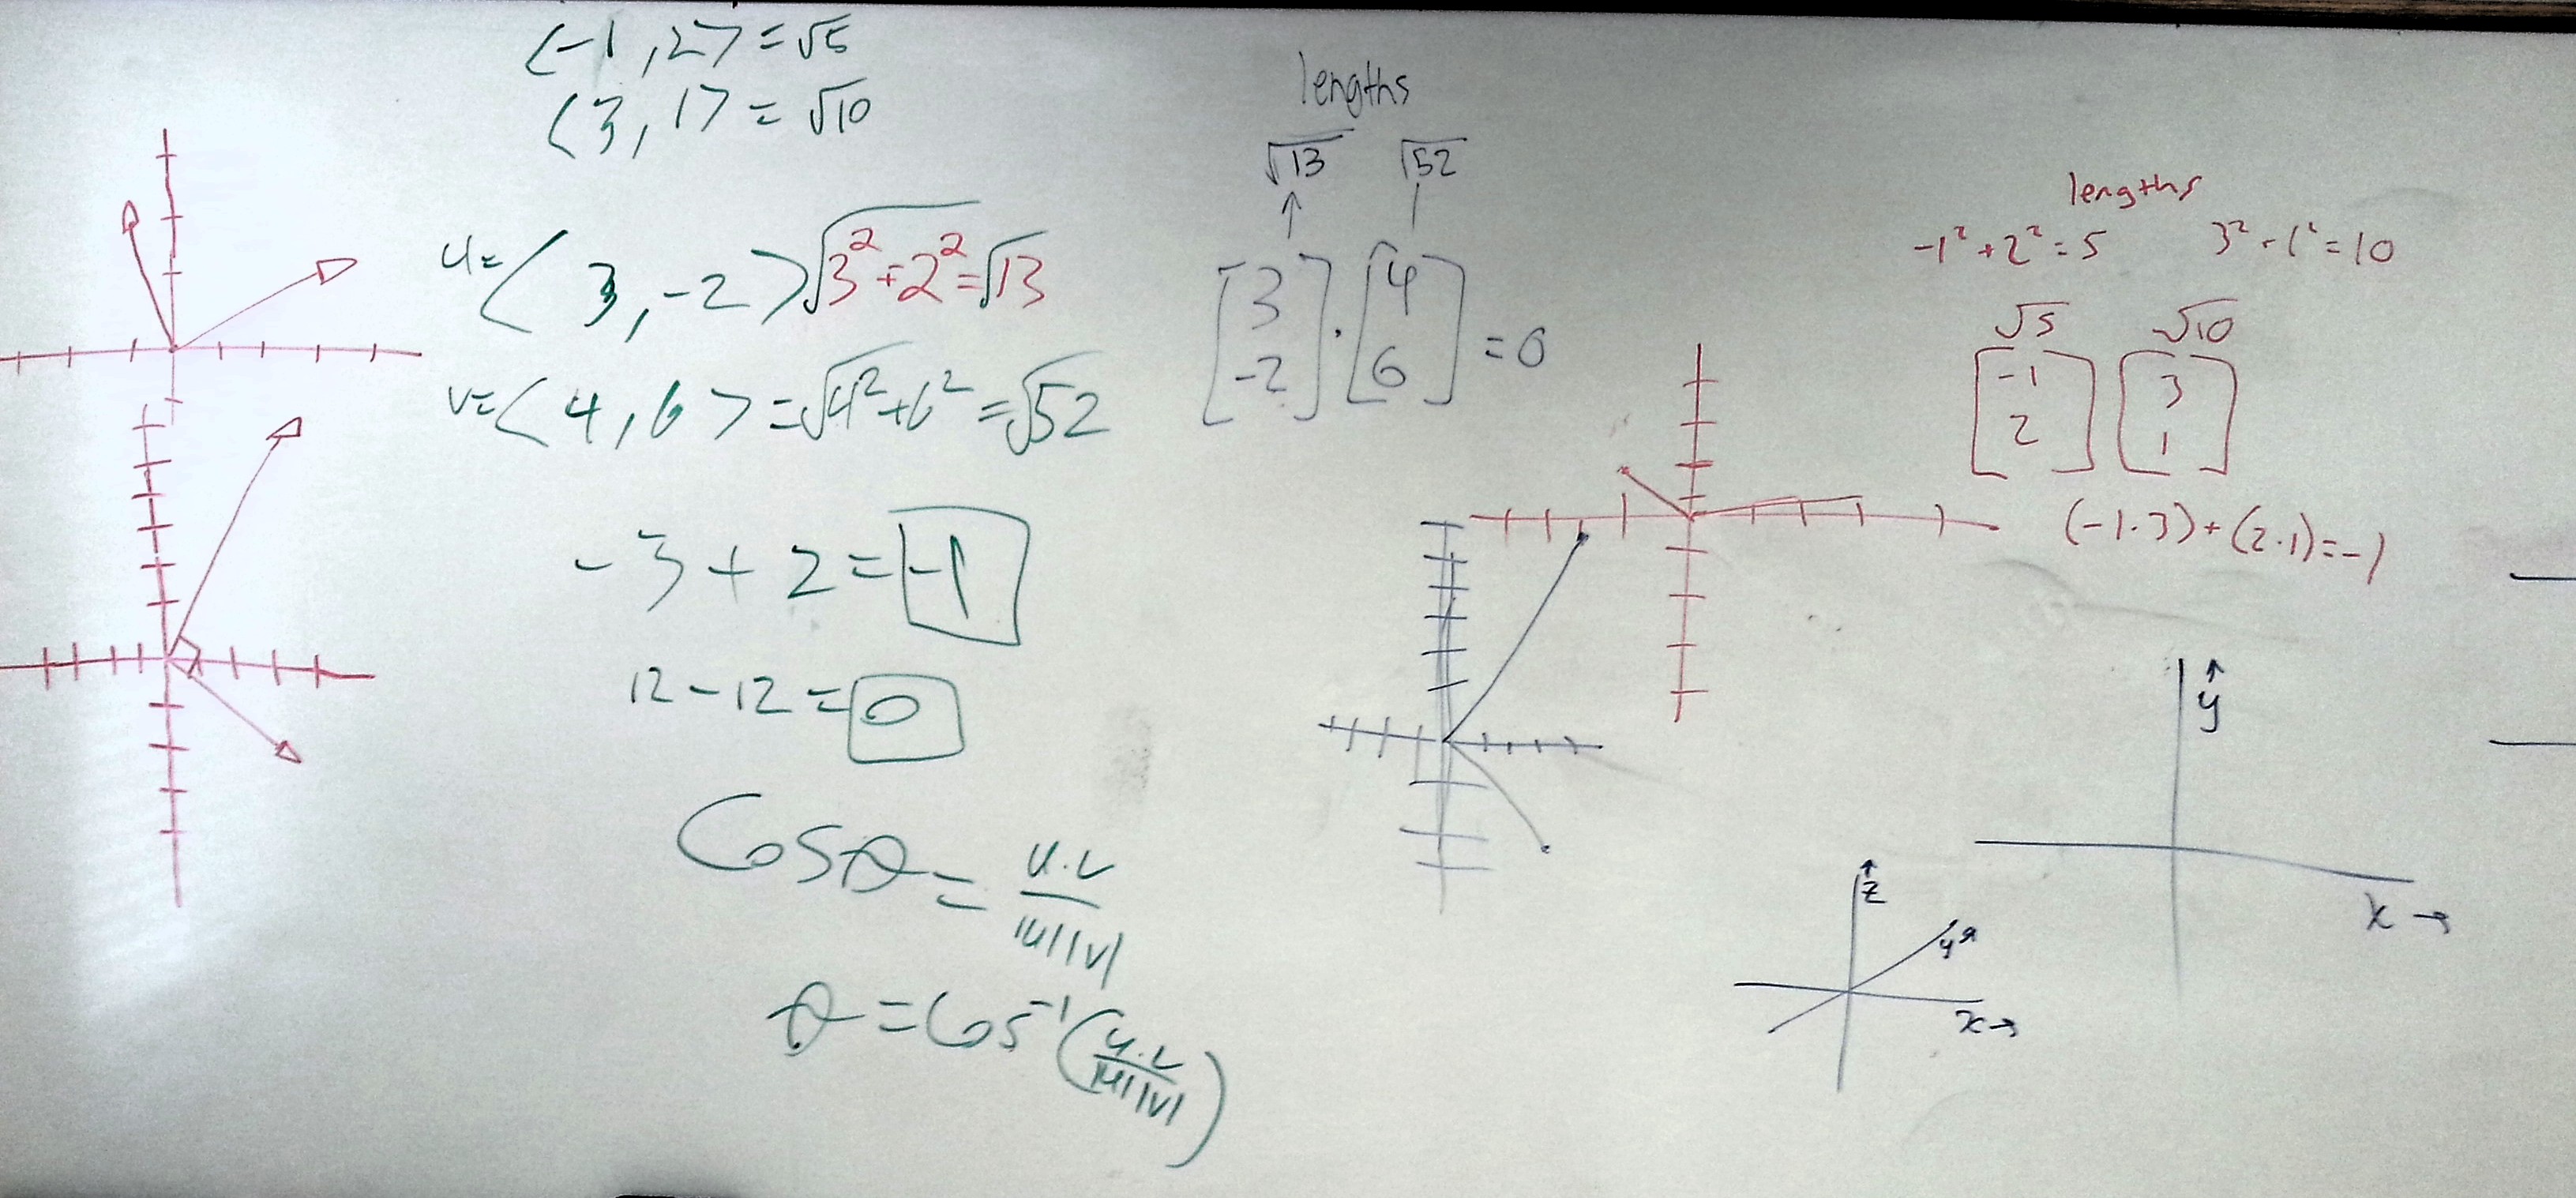 ⟨-1, 2⟩ = √5
⟨3, 1⟩ = √10
u= ⟨3, -2⟩ √3²+2² = √13
v= ⟨4, 6⟩ = √4²+6² = √52
-3 + 2 = -1
12 - 12 = 0
Cosθ = u·v / |u||v|
θ = Cos⁻¹(u·v / |u||v|)
lengths
√13 √52
[3 -2] · [4 6] = 0
lengths
-1² + 2² = 5 3² + 1² = 10
√5 √10
[-1 2] [3 1]
(-1·3) + (2·1) = -1
y
x →
z
y
x →